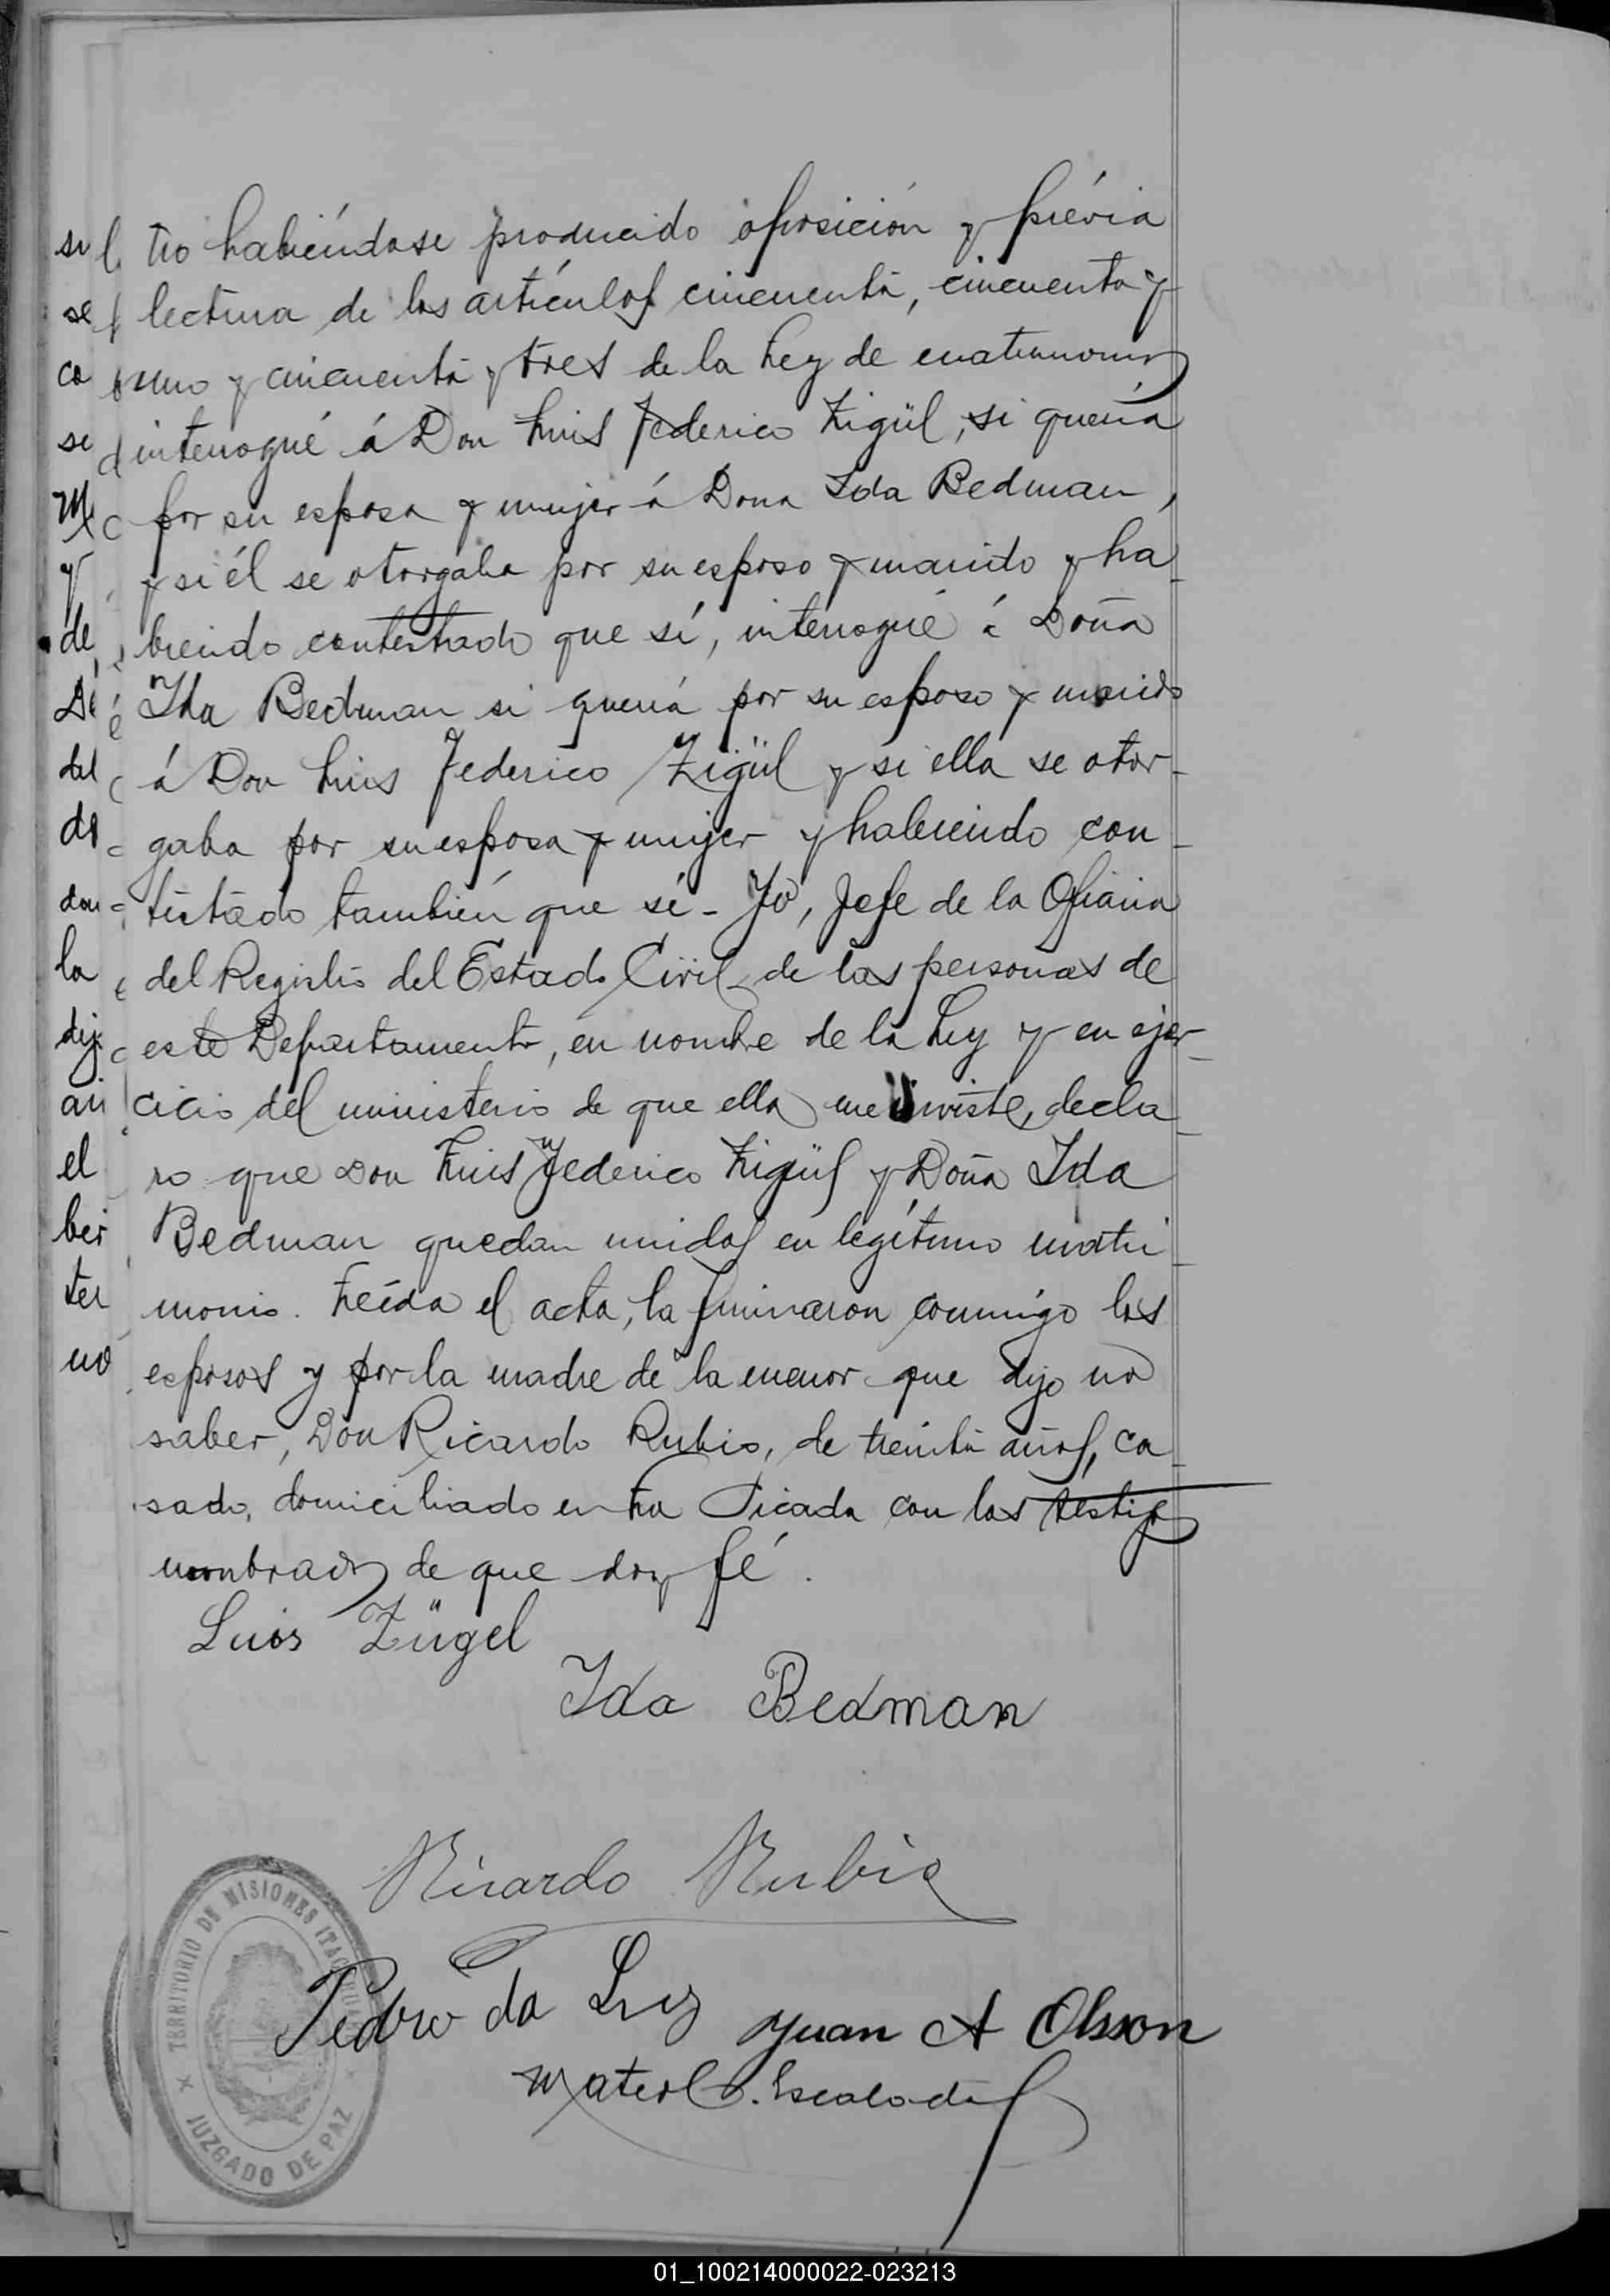 No habiéndose producido oposición y prévia
lectura de los artículos cincuenta, cincuenta y
uno y cincuenta y tres de la Ley de matrimonio
interrogué á Don Luis Federico Zigül, si quería
por su esposa y mujer á Dona Ida Bedman,
y si él se otorgaba por su esposo y marido y ha-
biendo contestado que sí, interrogué á Doña
Ida Bedman si quería por su esposo y marido
á Don Luis Federico Zigül y si ella se otor-
gaba por su esposa y mujer y habiendo con-
testado también que sí - Yo, Jefe de la Oficina
del Registro del Estado Civil de las personas de
este Departamento, en nombre de la Ley y en ejer-
cicio del ministerio de que ella me inviste, decla-
ro que Don Luis Federico Zigül y Doña Ida
Bedman quedan unidos en legítimo matri-
monio. Leída el acta, la firmaron conmigo los
esposos y por la madre de la menor que dijo no
saber, Don Ricardo Rubio, de treinta años, ca-
sado, domiciliado en La Picada con los testigos
nombrados de que doy fé.
Luis Zügel
Ida Bedman
Ricardo Rubio
Pedro da Luz
Juan A Olsson
TERRITORIO DE MISIONES
JUZGADO DE PAZ
01_100214000022-023213